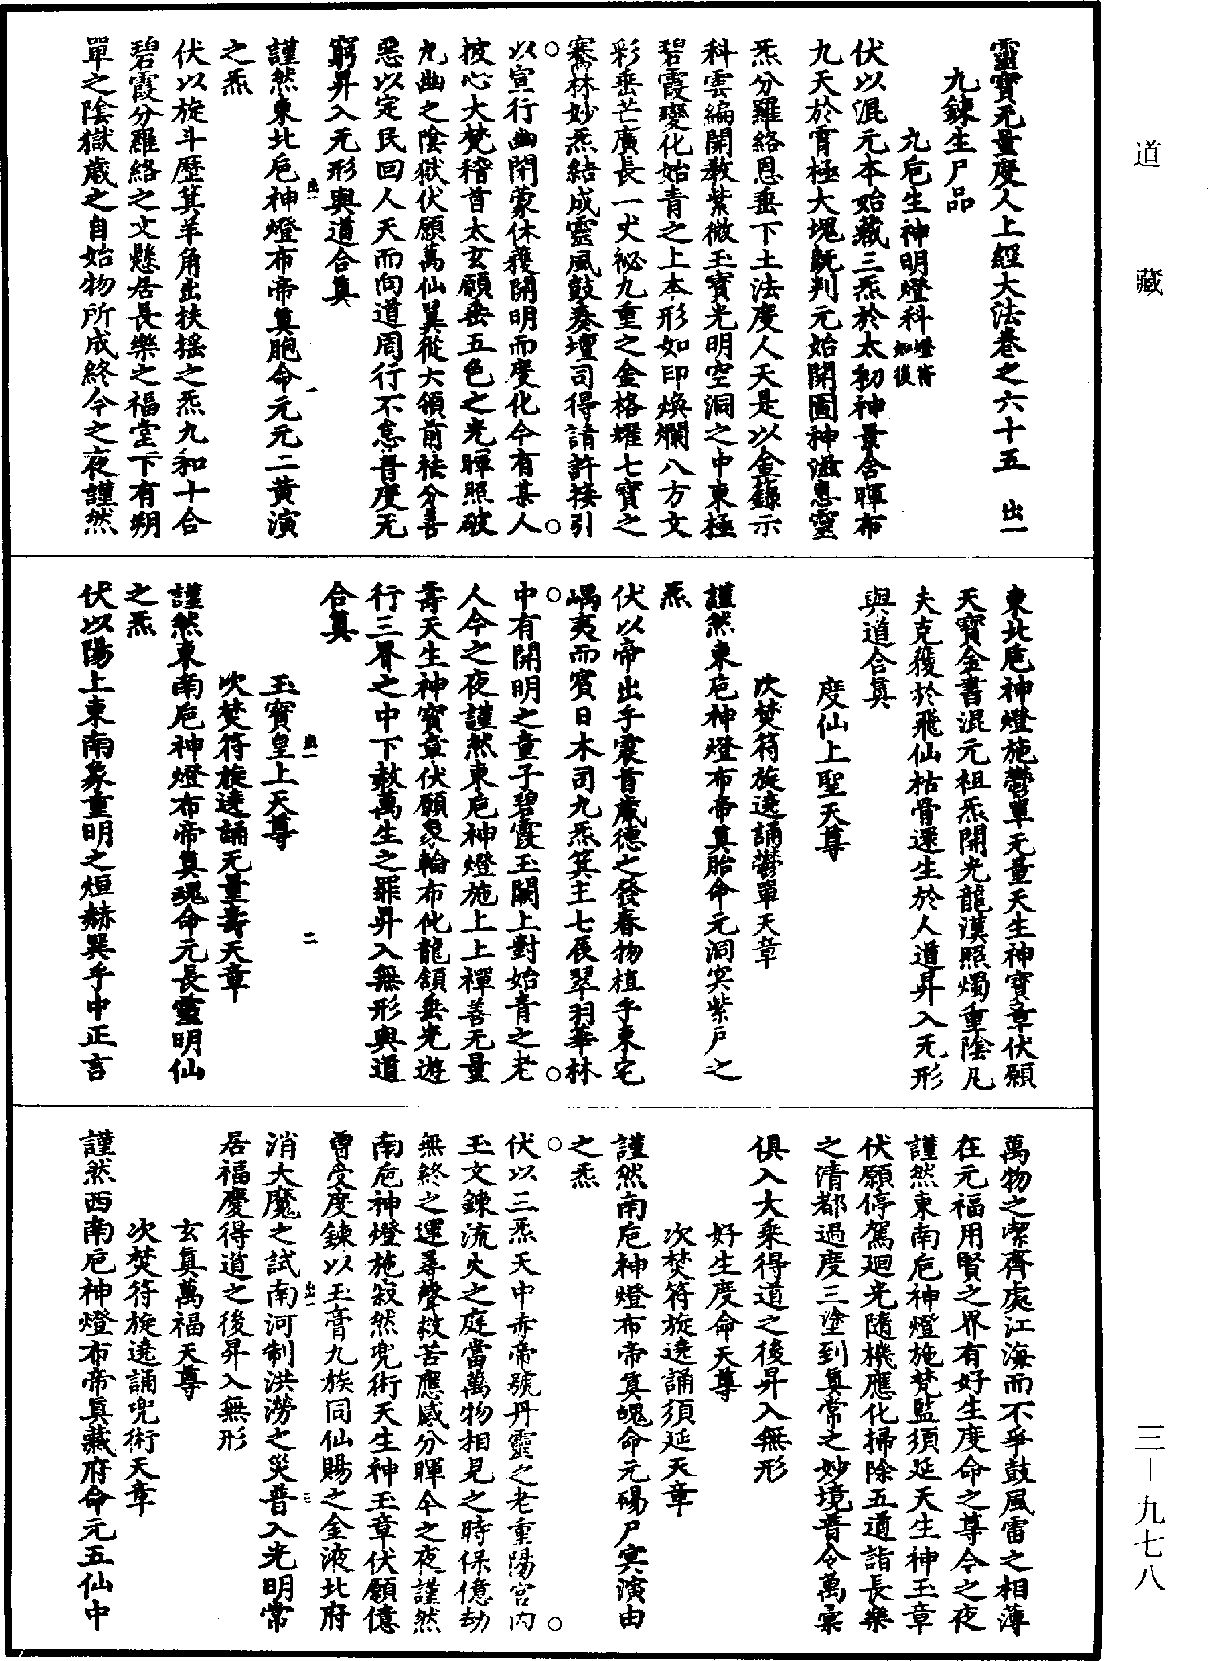 靈寶无量度人上經大法卷之六十五　出一
九鍊生尸品
九巵生神明燈科燈符如後
伏以混元本始藏三炁於太初神景含暉布
九天於霄極大塊旣判元始開圖神滋惠靈
炁分羅絡恩垂下土法度人天是以金籙示
科雲編開教紫微玉寶光明空洞之中東極
碧霞變化始青之上本形如印煥爛八方文
彩垂芒廣長一丈祕九重之金格耀七寶之
騫林妙炁結成靈風鼓奏壇司得請許接引
以宣行幽閉蒙休獲開明而度化今有某人
披心大梵稽首太玄願垂五色之光暉照破
九幽之陰獄伏願萬仙翼從大領前祛分善
惡以定民回人天而向道周行不怠普度无
窮昇入无形與道合真
謹然東北巵神燈布帝真胞命元元二黃演
之炁
伏以旋斗歷箕羊角出扶搖之炁九和十合
碧霞分羅絡之文懸居長樂之福堂下有朔
單之陰獄歲之自始物所成終今之夜謹然
東北巵神燈施鬱單无量天生神寶章伏願
天寶金書混元祖炁開光龍漢照燭重陰凡
夫克獲於飛仙枯骨還生於人道昇入无形
與道合真
度仙上聖天尊
次焚符旋遶誦鬱單天章
謹然東巵神燈布帝真胎命元洞冥紫戶之
炁
伏以帝出乎震首處德之發春物植乎東宅
嵎夷而賓日木司九炁箕主七辰翠羽華林
中有開明之童子碧霞玉闕上對始青之老
人今之夜謹然東巵神燈施上上禪善无量
壽天生神寶章伏願象輪布化龍頷垂光遊
行三界之中下赦萬生之罪昇入無形與道
合真
玉寶皇上天尊
次焚符旋遶誦无量壽天章
謹然東南巵神燈布帝真魂命元長靈明仙
之炁
伏以陽上東南象重明之烜赫巽乎中正言
萬物之潔齊處江海而不爭鼓風雷之相薄
在元福用賢之界有好生度命之尊今之夜
謹然東南巵神燈施梵監須延天生神玉章
伏願停駕廻光隨機應化掃除五道詣長樂
之清都過度三塗到真常之妙境普令萬彙
俱入大乘得道之後昇入無形
好生度命天尊
次焚符旋遶誦須延天章
謹然南巵神燈布帝真魄命元碭尸冥演由
之炁
伏以三炁天中赤帝號丹靈之老重陽宮內
玉文鍊流火之庭當萬物相見之時保億劫
無終之運尋聲救苦應感分暉今之夜謹然
南巵神燈施寂然兜術天生神玉章伏願億
曾受度鍊以玉膏九族同仙賜之金液北府
消大魔之試南河制洪澇之災普入光明常
居福慶得道之後昇入無形
玄真萬福天尊
次焚符旋遶誦兜術天章
謹然西南巵神燈布帝真藏府命元五仙中
道藏
三—九七八